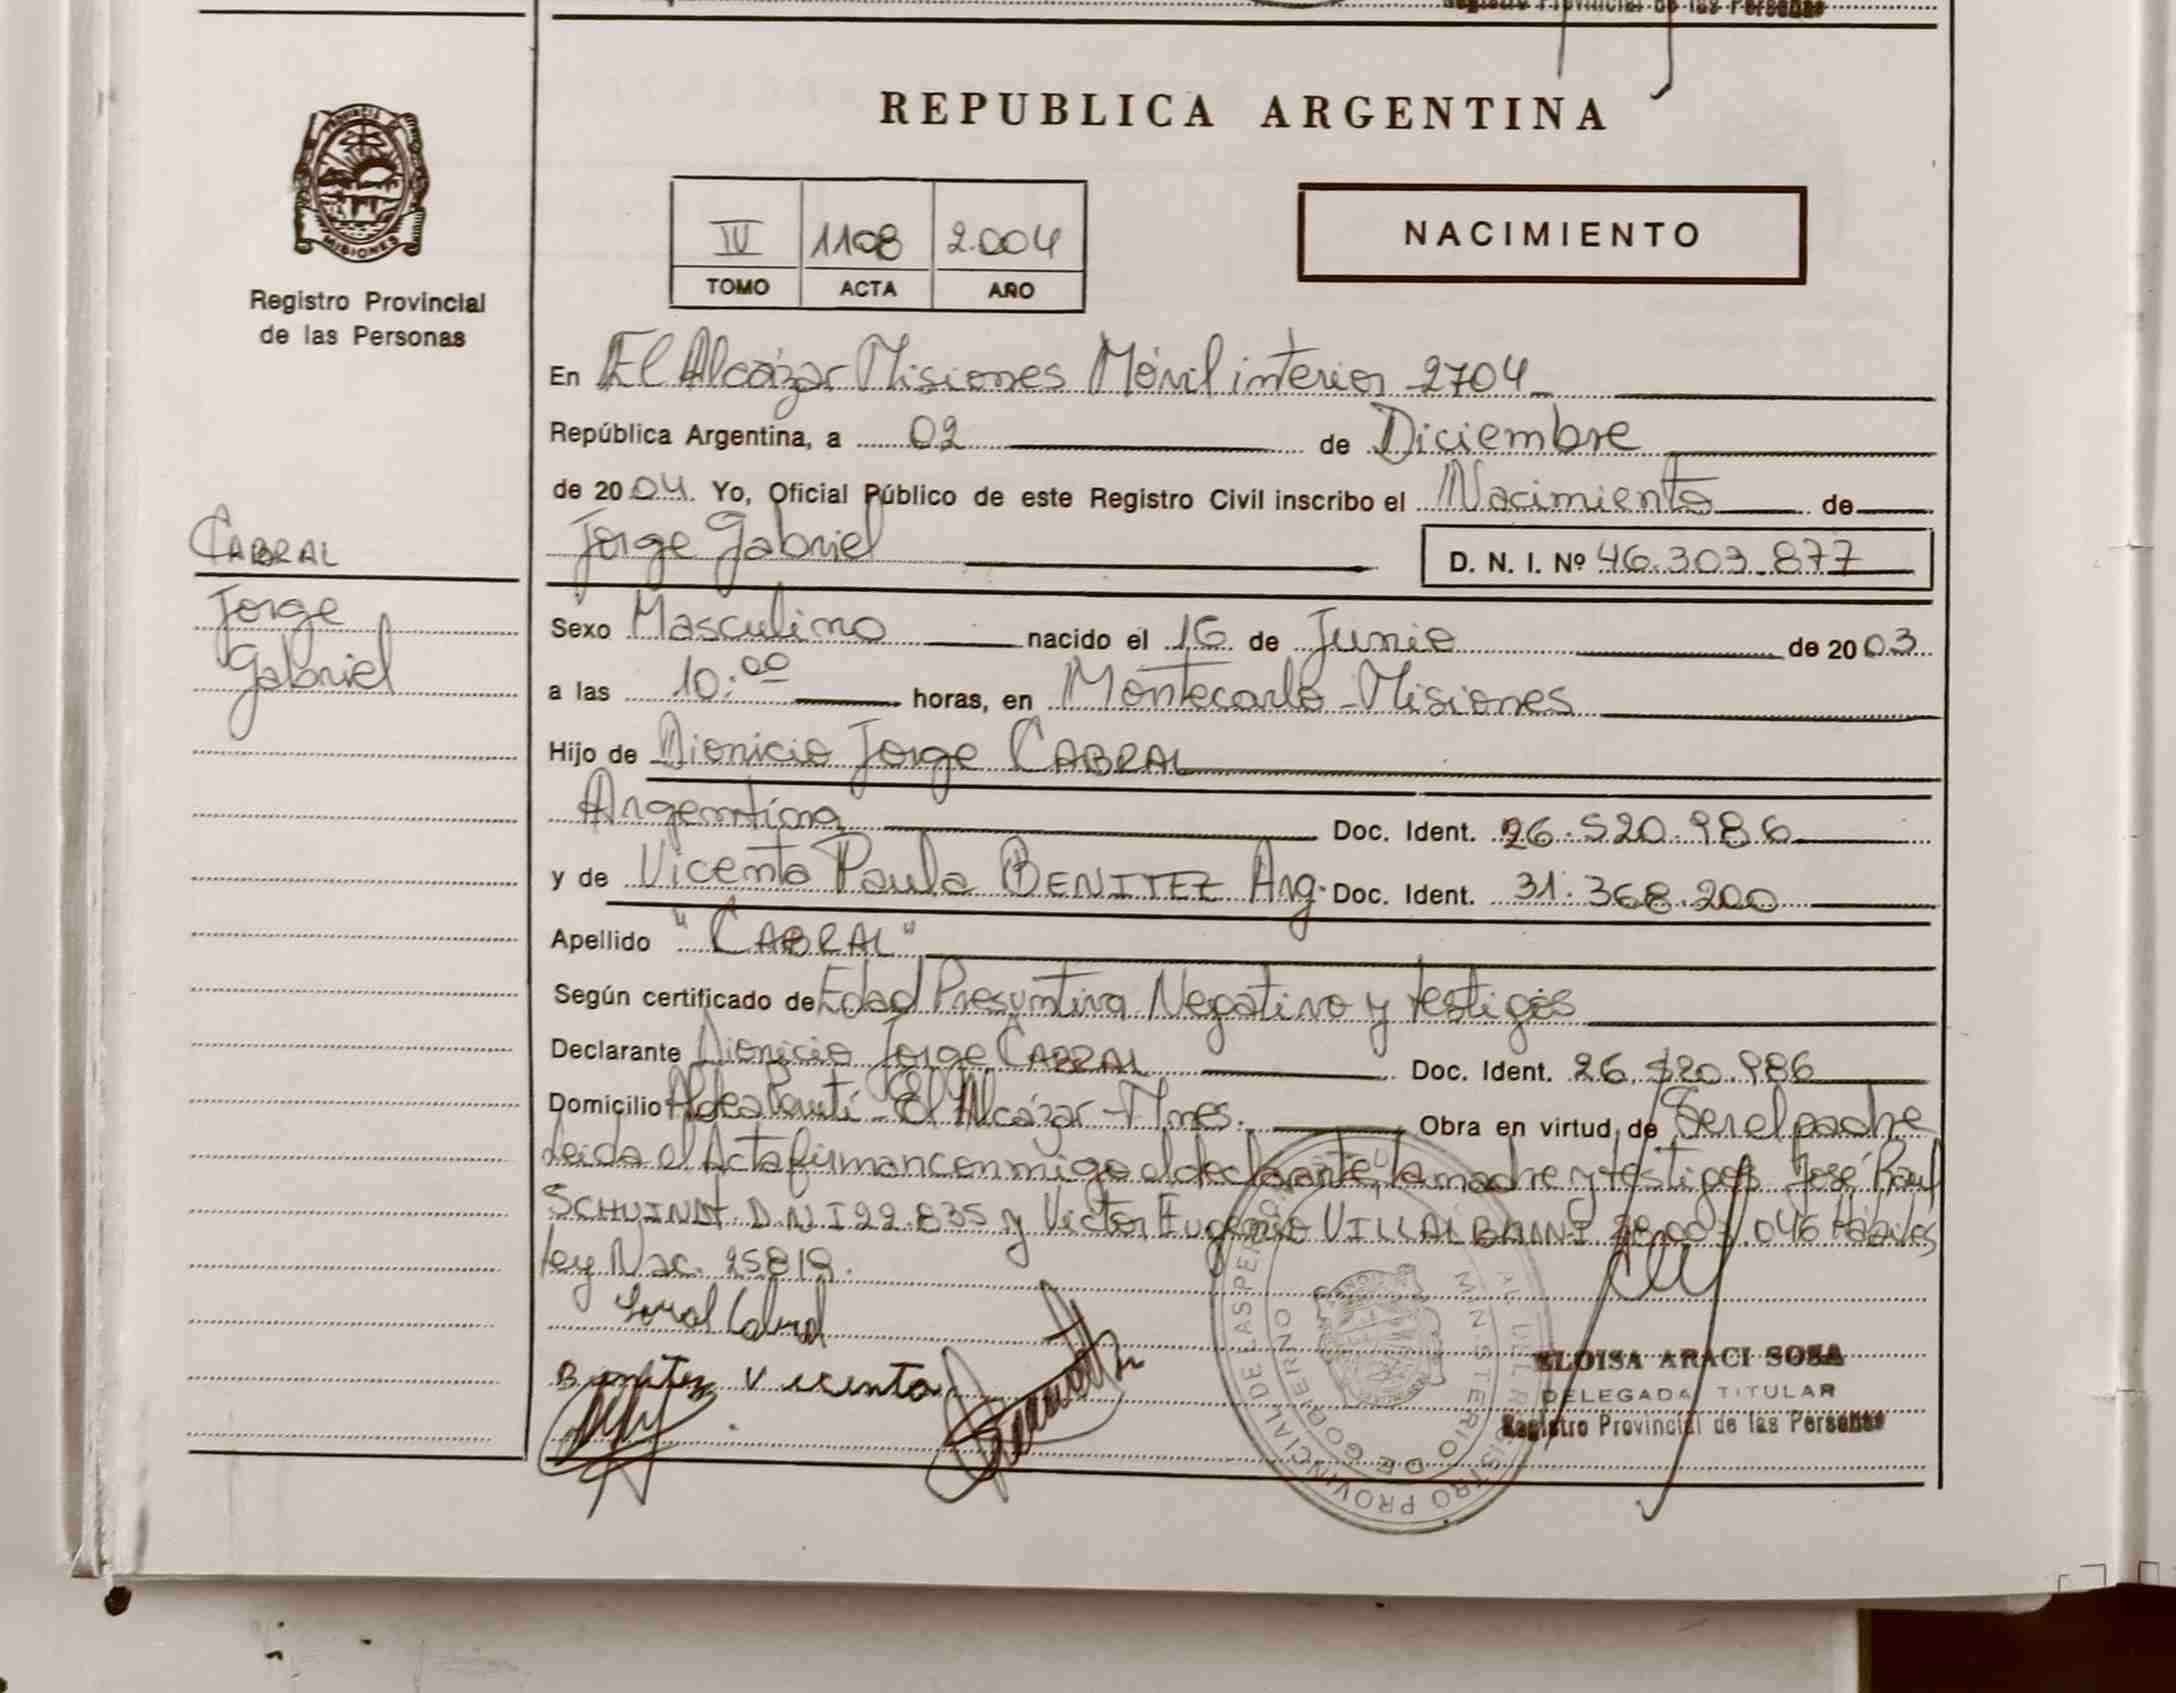 Registro Provincial de las Personas
REPUBLICA ARGENTINA
PROVINCIA DE
MISIONES
Registro Provincial
de las Personas
IV 1108 2.004
TOMO ACTA AÑO
NACIMIENTO
En El Alcázar Misiones Móvil interior 2704
República Argentina, a 02 de Diciembre
de 2004. Yo, Oficial Público de este Registro Civil inscribo el Nacimiento de
Jorge Gabriel D. N. I. Nº 46.303.877
CABRAL
Jorge
Gabriel
Sexo Masculino nacido el 16 de Junio de 2003
a las 10:00 horas, en Montecarlo - Misiones
Hijo de Dionicio Jorge CABRAL
Argentina Doc. Ident. 26.520.986
y de Vicenta Paula BENITEZ Arg. Doc. Ident. 31.368.200
Apellido "CABRAL"
Según certificado de Edad Presuntiva Negativo y testigos
Declarante Dionicio Jorge CABRAL Doc. Ident. 26.520.986
Domicilio Aldea - El Alcázar - Mnes. Obra en virtud de Ser el padre
Leida el Acta firman conmigo el declarante, la madre y testigos José Raul
SCHUINDT D.N.I 22.835 y Victor Eugenio VILLALBA .046 Hábiles
ley Nac. 25819.
Cabral
Benitez Vicenta
REGISTRO PROVINCIAL DE LAS PERSONAS
MINISTERIO DE GOBIERNO
ELOISA ARACI SOSA
DELEGADA TITULAR
Registro Provincial de las Personas